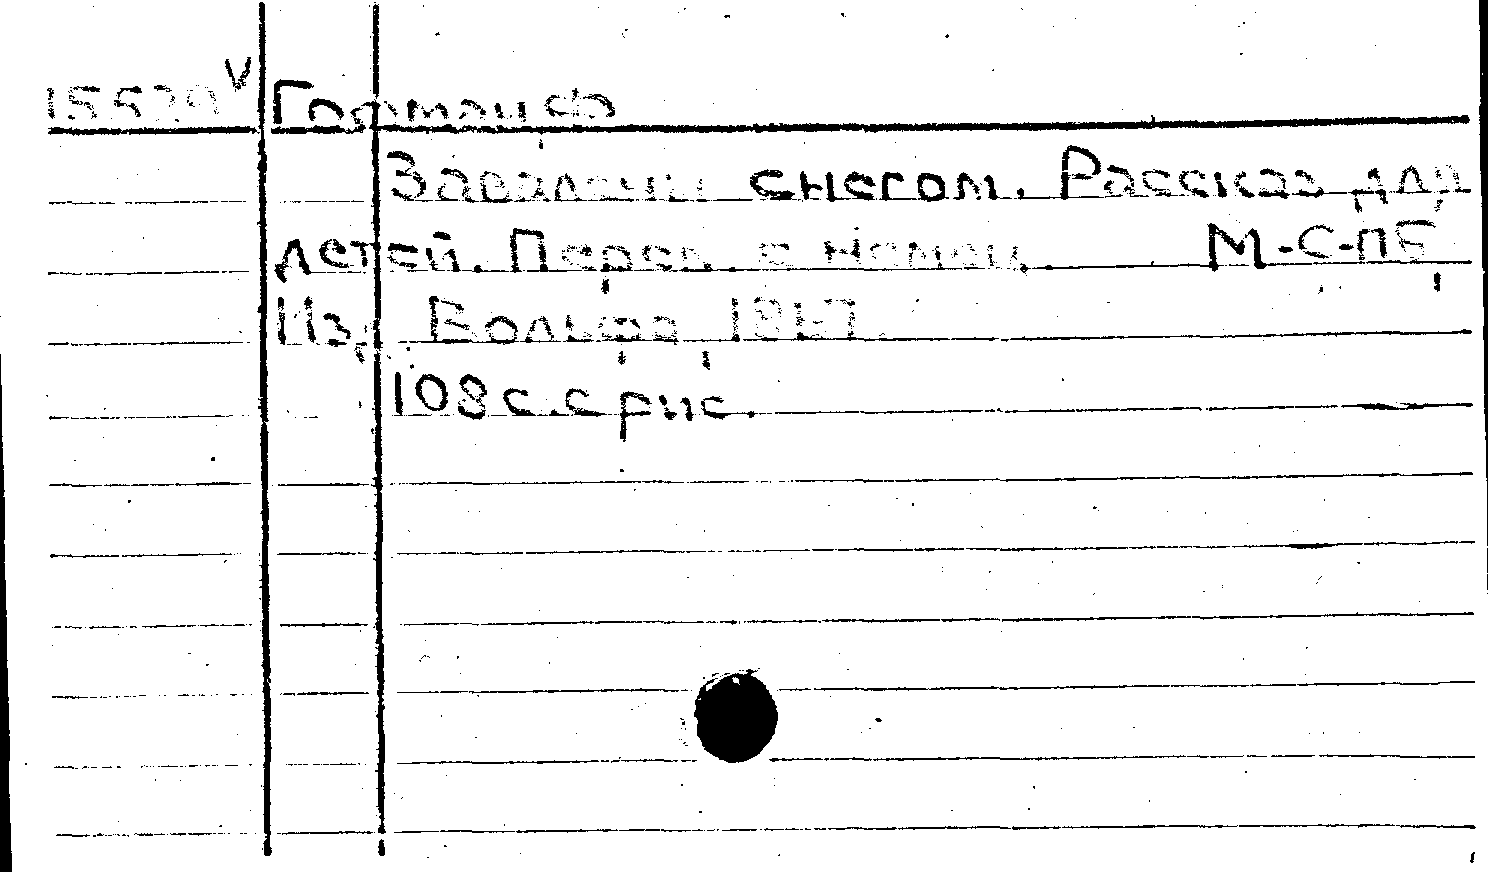 Гофман Ф
Завалены снегом. Рассказ для
детей. Перев. с немец. М.-С-ПБ,
Изд. Вольфа,
108 с. с рис.